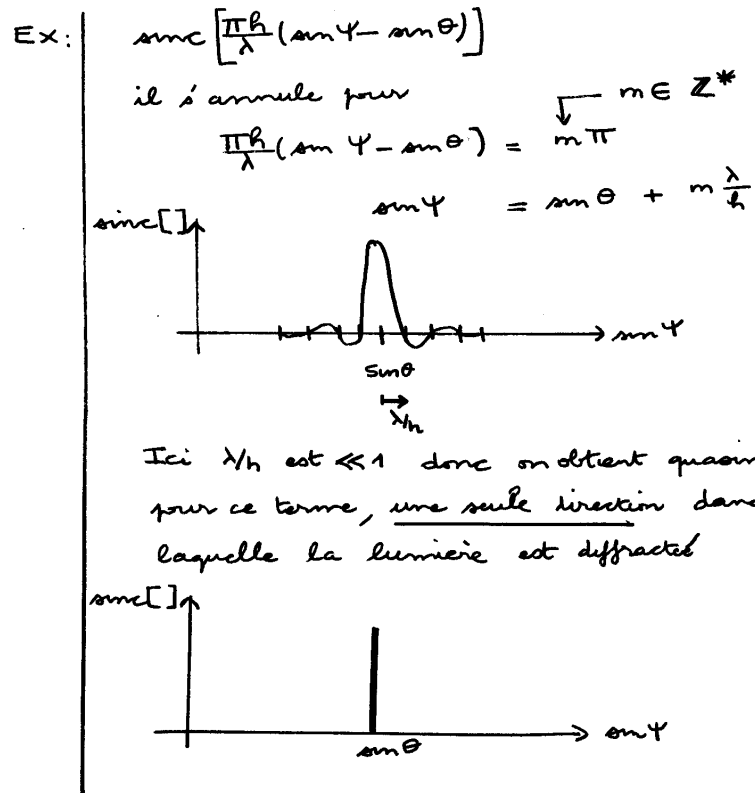 Ex: sinc [πh/λ (sin Ψ - sin θ)]
il s'annule pour
m ∈ ℤ*
πh/λ (sin Ψ - sin θ) = mπ
sin Ψ = sin θ + m λ/h
sinc[]
sin Ψ
sin θ
λ/h
Ici λ/h est ≪ 1 donc on obtient quasim
pour ce terme, une seule direction dans
laquelle la lumière est diffractée
sinc[]
sin θ
sin Ψ